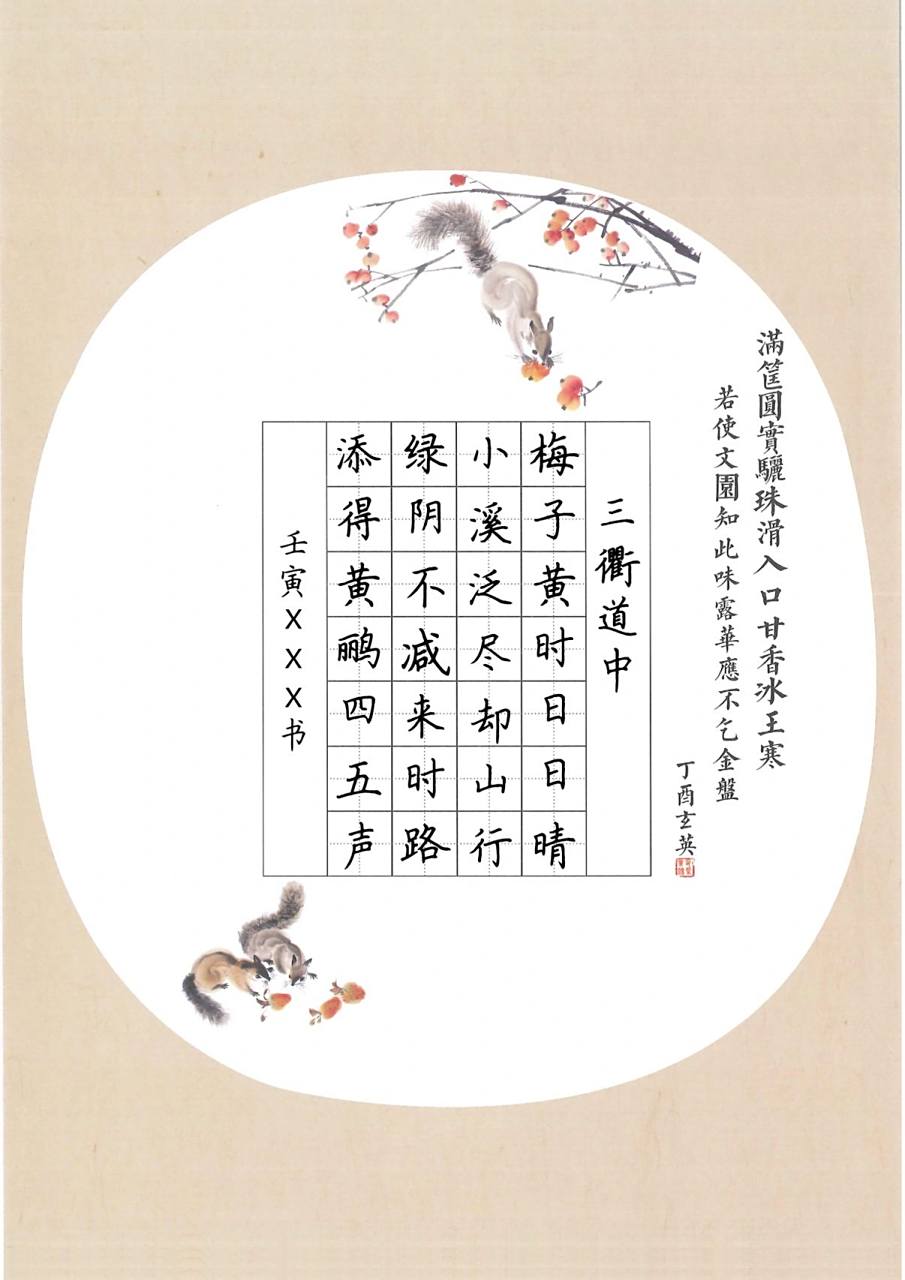 滿筐圓實驪珠滑入口甘香冰王寒
若使文園知此味露華應不乞金盤
丁酉玄英
三衢道中
梅子黄时日日晴
小溪泛尽却山行
绿阴不减来时路
添得黄鹂四五声
壬寅XXX书